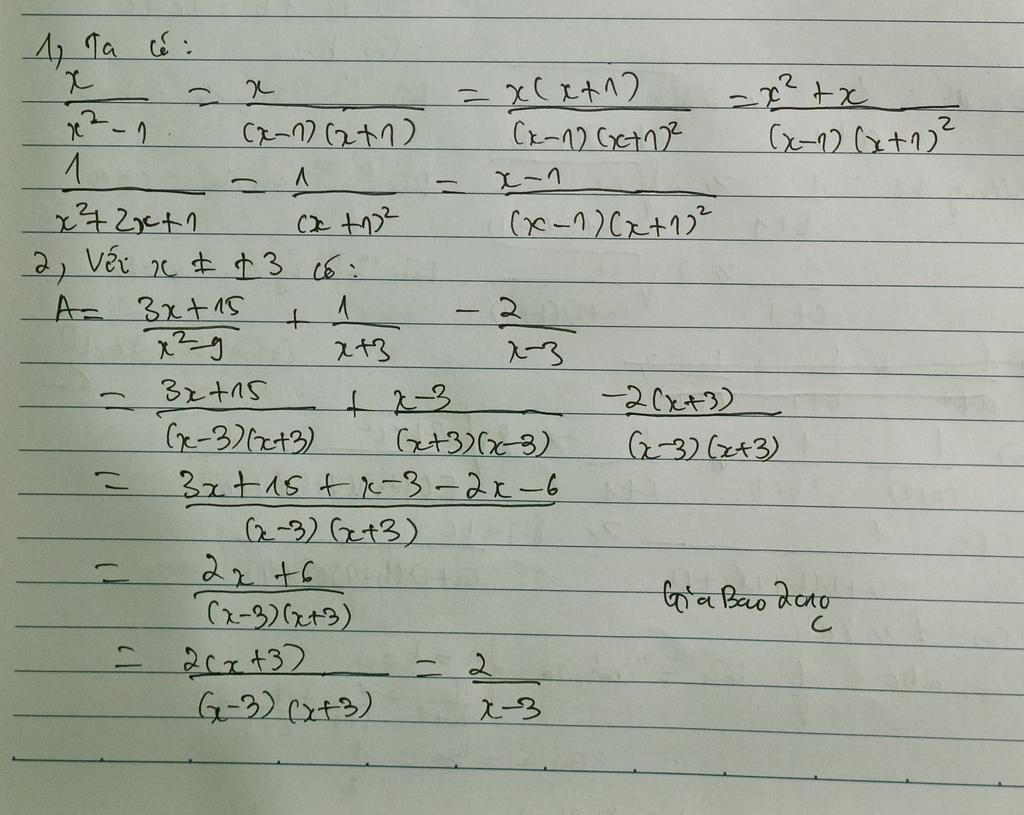 1, Ta có:
x/(x² - 1) = x/((x-1)(x+1)) = x(x+1)/((x-1)(x+1)²) = x² + x/((x-1)(x+1)²)
1/(x² + 2x + 1) = 1/(x+1)² = x-1/((x-1)(x+1)²)
2, Với x ≠ ±3 có:
A = 3x+15/(x²-9) + 1/(x+3) - 2/(x-3)
= 3x+15/((x-3)(x+3)) + x-3/((x+3)(x-3)) -2(x+3)/((x-3)(x+3))
= 3x+15+x-3-2x-6/((x-3)(x+3))
= 2x+6/((x-3)(x+3))
Gia Bao
= 2(x+3)/((x-3)(x+3)) = 2/(x-3)